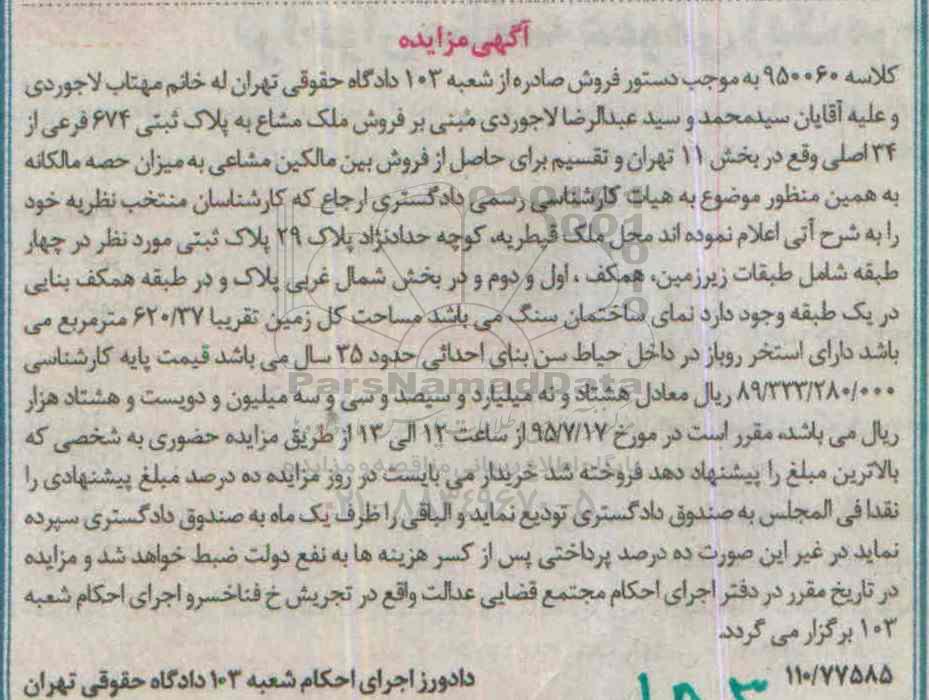 آگهی مزایده
کلاسه ۹۵۰۰۶۰ به موجب دستور فروش صادره از شعبه ۱۰۳ دادگاه حقوقی تهران له خانم مهتاب لاجوردی
و علیه آقایان سیدمحمد و سید عبدالرضا لاجوردی مبنی بر فروش ملک مشاع به پلاک ثبتی ۶۷۴ فرعی از
۳۴ اصلی وقع در بخش ۱۱ تهران و تقسیم برای حاصل از فروش بین مالکین مشاعی به میزان حصه مالکانه
به همین منظور موضوع به هیات کارشناسی رسمی دادگستری ارجاع که کارشناسان منتخب نظریه خود
را به شرح آتی اعلام نموده اند محل ملک قیطریه، کوچه حدادنژاد پلاک ۲۹ پلاک ثبتی مورد نظر در چهار
طبقه شامل طبقات زیرزمین، همکف ، اول و دوم و در بخش شمال غربی پلاک و در طبقه همکف بنایی
در یک طبقه وجود دارد نمای ساختمان سنگ می باشد مساحت کل زمین تقریبا ۶۲۰/۳۷ مترمربع می
باشد دارای استخر روباز در داخل حیاط سن بنای احداثی حدود ۳۵ سال می باشد قیمت پایه کارشناسی
۸۹/۳۳۳/۲۸۰/۰۰۰ ریال معادل هشتاد و نه میلیارد و سیصد و سی و سه میلیون و دویست و هشتاد هزار
ریال می باشد، مقرر است در مورخ ۹۵/۷/۱۷ از ساعت ۱۲ الی ۱۳ از طریق مزایده حضوری به شخصی که
بالاترین مبلغ را پیشنهاد دهد فروخته شد خریدار می بایست در روز مزایده ده درصد مبلغ پیشنهادی را
نقدا فی المجلس به صندوق دادگستری تودیع نماید و الباقی را ظرف یک ماه به صندوق دادگستری سپرده
نماید در غیر این صورت ده درصد پرداختی پس از کسر هزینه ها به نفع دولت ضبط خواهد شد و مزایده
در تاریخ مقرر در دفتر اجرای احکام مجتمع قضایی عدالت واقع در تجریش خ فناخسرو اجرای احکام شعبه
۱۰۳ برگزار می گردد.
۱۱۰/۷۷۵۸۵ دادورز اجرای احکام شعبه ۱۰۳ دادگاه حقوقی تهران
ParsNamadData